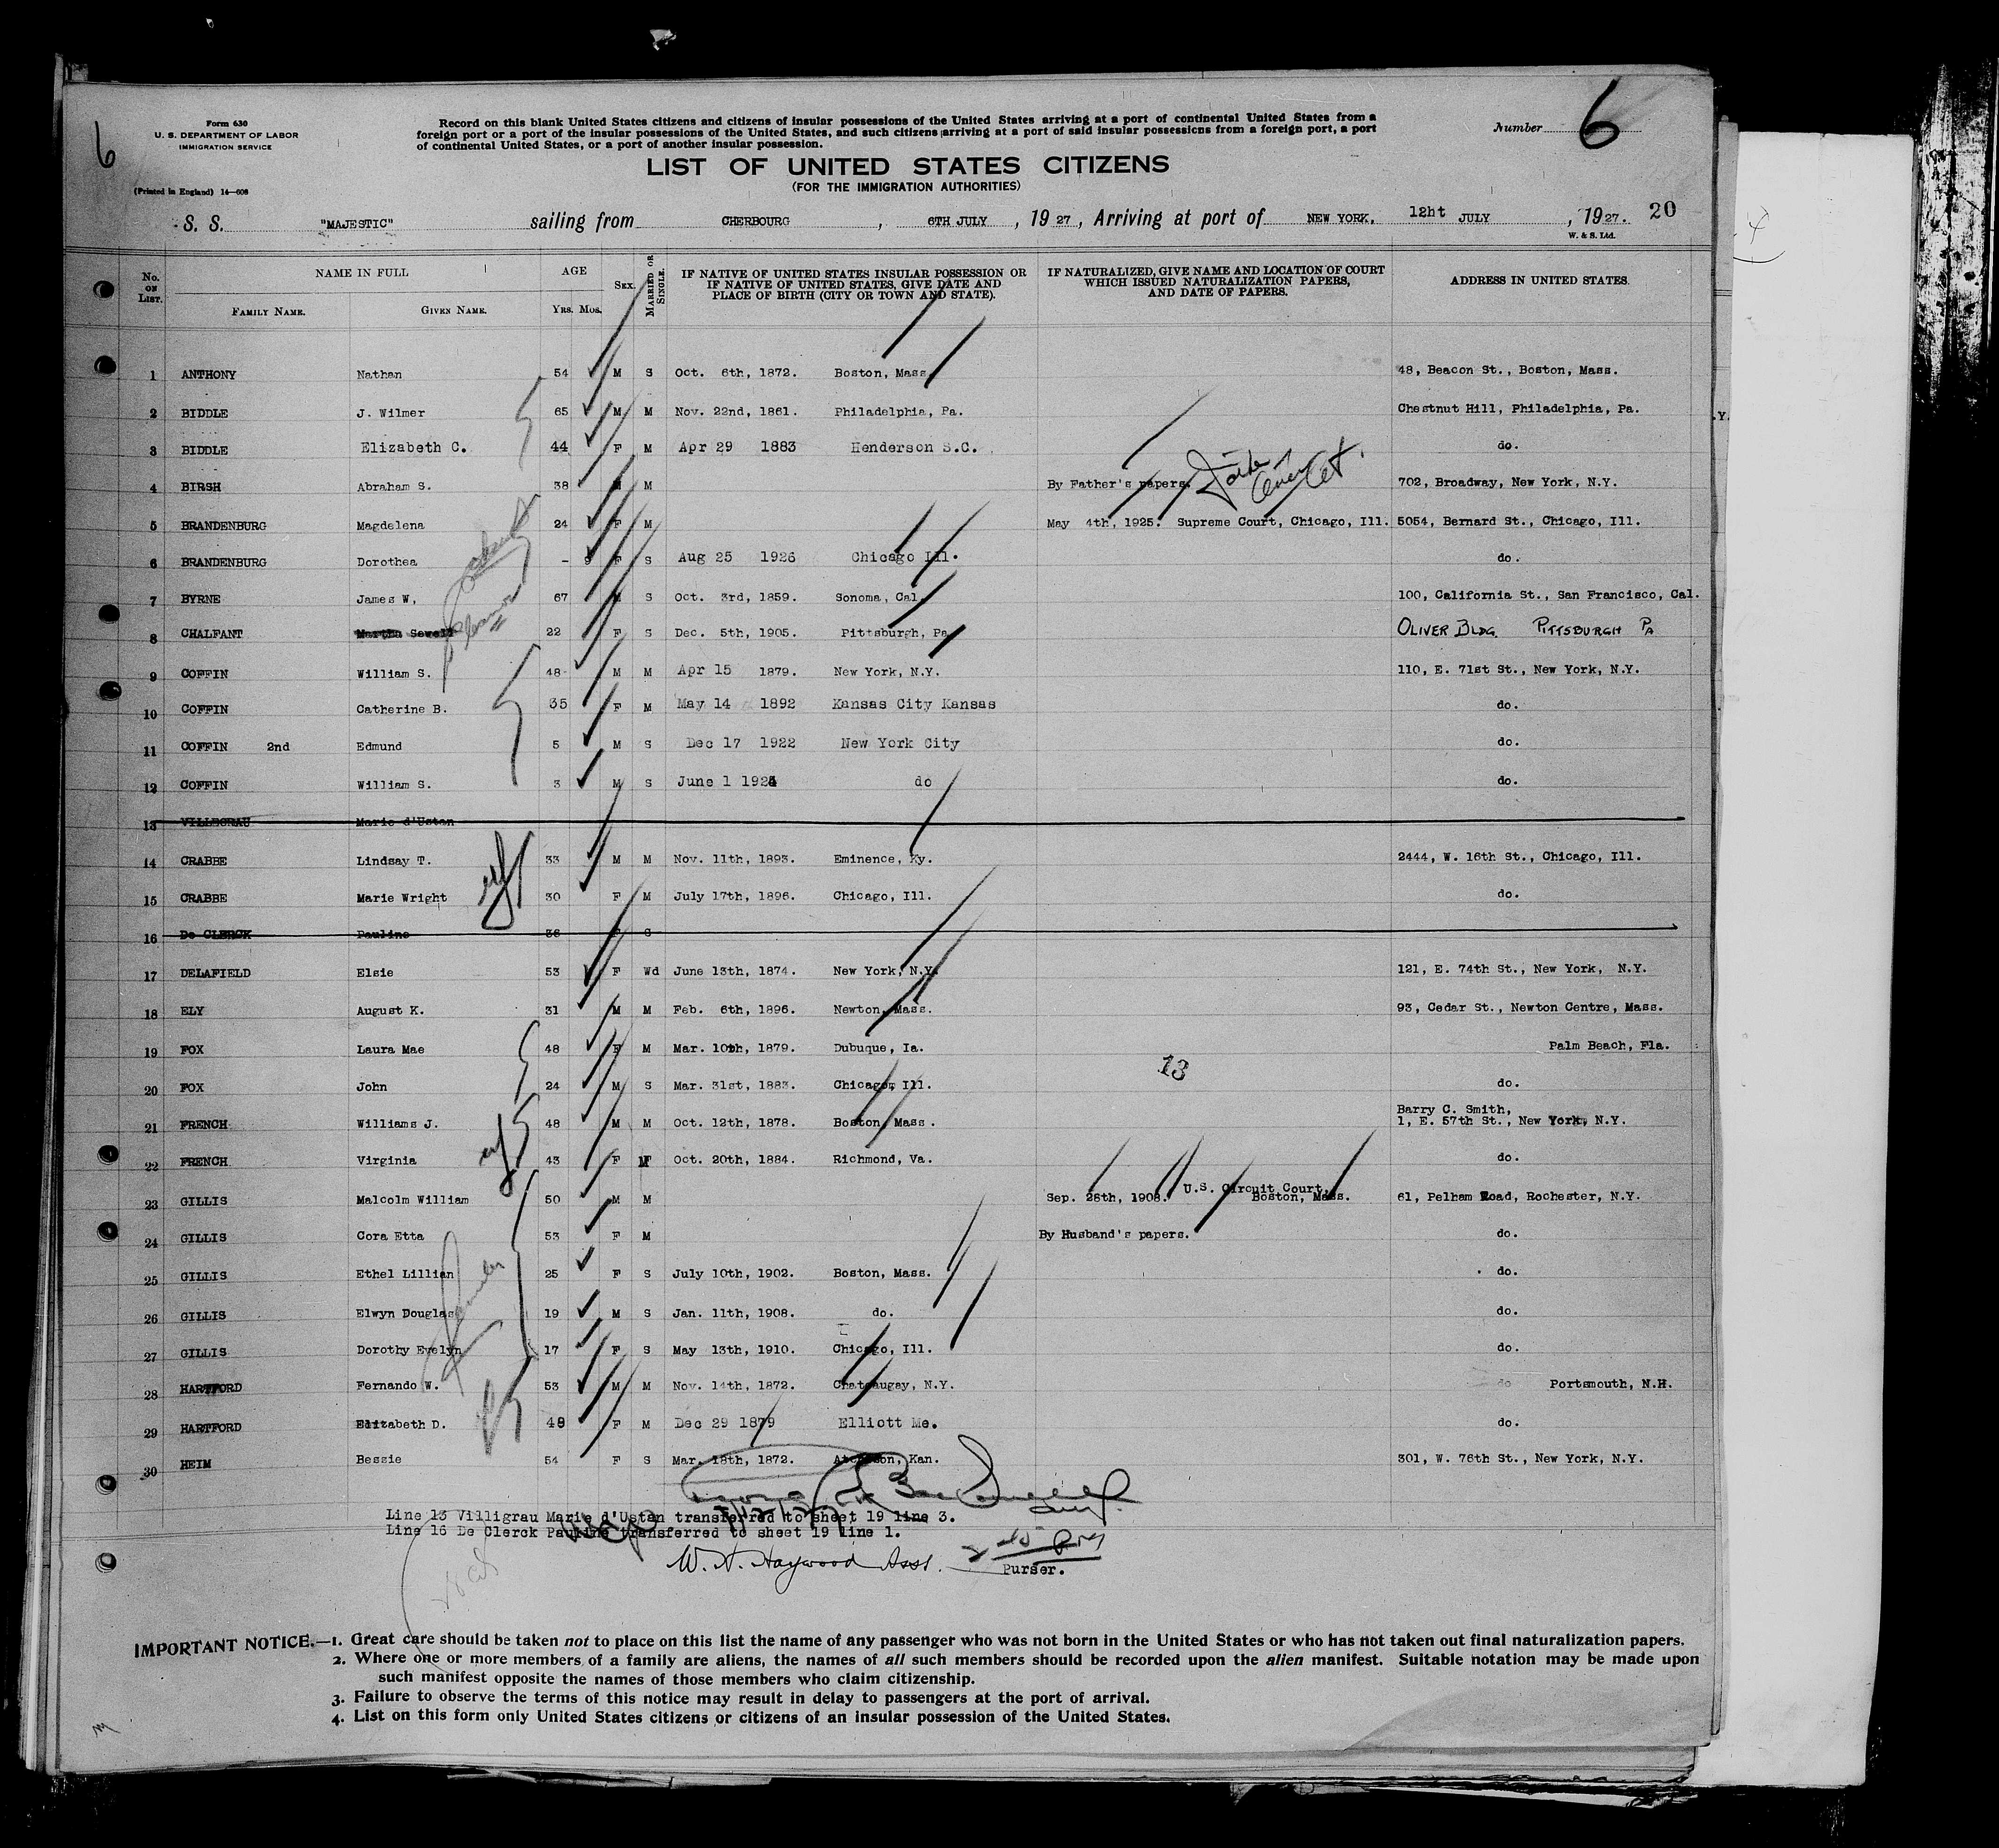 6
Form 630
U. S. DEPARTMENT OF LABOR
IMMIGRATION SERVICE
(Printed in England) 14—608
Record on this blank United States citizens and citizens of insular possessions of the United States arriving at a port of continental United States from a
foreign port or a port of the insular possessions of the United States, and such citizens arriving at a port of said insular possessions from a foreign port, a port
of continental United States, or a port of another insular possession.
Number 6
LIST OF UNITED STATES CITIZENS
(FOR THE IMMIGRATION AUTHORITIES)
S. S. "MAJESTIC" sailing from CHERBOURG, 6TH JULY, 1927, Arriving at port of NEW YORK, 12ht JULY, 1927. 20
W. & S. Ltd.
No. ON LIST. NAME IN FULL FAMILY NAME. GIVEN NAME. AGE YRS. MOS. SEX. MARRIED OR SINGLE. IF NATIVE OF UNITED STATES INSULAR POSSESSION OR IF NATIVE OF UNITED STATES, GIVE DATE AND PLACE OF BIRTH (CITY OR TOWN AND STATE). IF NATURALIZED, GIVE NAME AND LOCATION OF COURT WHICH ISSUED NATURALIZATION PAPERS, AND DATE OF PAPERS. ADDRESS IN UNITED STATES.
1 ANTHONY Nathan 54 M S Oct. 6th, 1872. Boston, Mass. 48, Beacon St., Boston, Mass.
2 BIDDLE J. Wilmer 65 M M Nov. 22nd, 1861. Philadelphia, Pa. Chestnut Hill, Philadelphia, Pa.
3 BIDDLE Elizabeth C. 44 F M Apr 29 1883 Henderson S.C. do.
4 BIRSH Abraham S. 38 M M By Father's papers. 702, Broadway, New York, N.Y.
5 BRANDENBURG Magdelena 24 F M May 4th, 1925. Supreme Court, Chicago, Ill. 5054, Bernard St., Chicago, Ill.
6 BRANDENBURG Dorothea - 9 F S Aug 25 1926 Chicago Ill. do.
7 BYRNE James W, 67 M S Oct. 3rd, 1859. Sonoma, Cal. 100, California St., San Francisco, Cal.
8 CHALFANT Martha Sewell 22 F S Dec. 5th, 1905. Pittsburgh, Pa. OLIVER BLDG. PITTSBURGH PA
9 COFFIN William S. 48 M M Apr 15 1879. New York, N.Y. 110, E. 71st St., New York, N.Y.
10 COFFIN Catherine B. 35 F M May 14 1892 Kansas City Kansas do.
11 COFFIN 2nd Edmund 5 M S Dec 17 1922 New York City do.
12 COFFIN William S. 3 M S June 1 1924 do do.
13 VILLEGRAU Marie d'Ustan
14 CRABBE Lindsay T. 33 M M Nov. 11th, 1893. Eminence, Ky. 2444, W. 16th St., Chicago, Ill.
15 CRABBE Marie Wright 30 F M July 17th, 1896. Chicago, Ill. do.
16 De CLERCK Pauline 36 F S
17 DELAFIELD Elsie 53 F Wd June 13th, 1874. New York, N.Y. 121, E. 74th St., New York, N.Y.
18 ELY August K. 31 M M Feb. 6th, 1896. Newton, Mass. 93, Cedar St., Newton Centre, Mass.
19 FOX Laura Mae 48 F M Mar. 10th, 1879. Dubuque, Ia. Palm Beach, Fla.
20 FOX John 24 M S Mar. 31st, 1883. Chicago, Ill. do.
13
21 FRENCH Williams J. 48 M M Oct. 12th, 1878. Boston, Mass. Barry C. Smith,
1, E. 57th St., New York, N.Y.
22 FRENCH Virginia 43 F M Oct. 20th, 1884. Richmond, Va. do.
23 GILLIS Malcolm William 50 M M Sep. 26th, 1908. U.S. Circuit Court, Boston, Mass. 61, Pelham Road, Rochester, N.Y.
24 GILLIS Cora Etta 53 F M By Husband's papers. do.
25 GILLIS Ethel Lillian 25 F S July 10th, 1902. Boston, Mass. do.
26 GILLIS Elwyn Douglas 19 M S Jan. 11th, 1908. do. do.
27 GILLIS Dorothy Evelyn 17 F S May 13th, 1910. Chicago, Ill. do.
28 HARTFORD Fernando W. 53 M M Nov. 14th, 1872. Chateaugay, N.Y. do Portsmouth, N.H.
29 HARTFORD Elizabeth D. 48 F M Dec 29 1879 Elliott Me. do.
30 HEIM Bessie 54 F S Mar. 18th, 1872. Atchison, Kan. 301, W. 76th St., New York, N.Y.
Line 13 Villigrau Marie d'Ustan transferred to sheet 19 line 3.
Line 16 De Clerck Pauline transferred to sheet 19 line 1.
W. H. Haywood Asst. Purser.
IMPORTANT NOTICE.—1. Great care should be taken not to place on this list the name of any passenger who was not born in the United States or who has not taken out final naturalization papers.
2. Where one or more members of a family are aliens, the names of all such members should be recorded upon the alien manifest. Suitable notation may be made upon
such manifest opposite the names of those members who claim citizenship.
3. Failure to observe the terms of this notice may result in delay to passengers at the port of arrival.
4. List on this form only United States citizens or citizens of an insular possession of the United States.